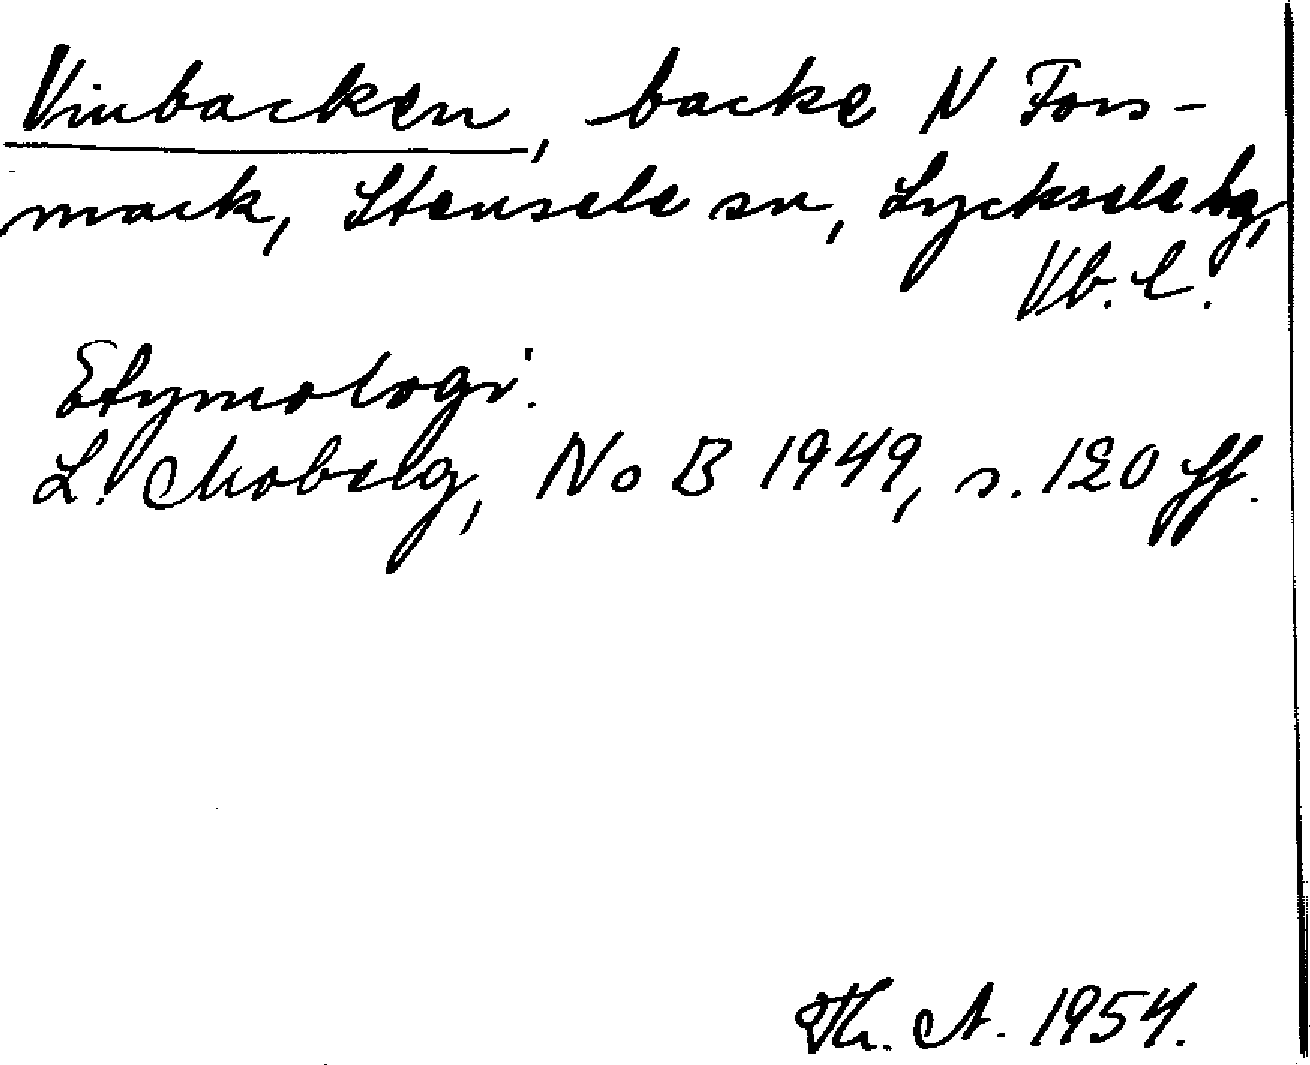 Vinbacken, backe N Fors-
mark, Stensele sn, Lycksele lg,
Vb. l.
Etymologi:
L. Moberg, NoB 1949, s. 120 ff.
Th. A. 1954.